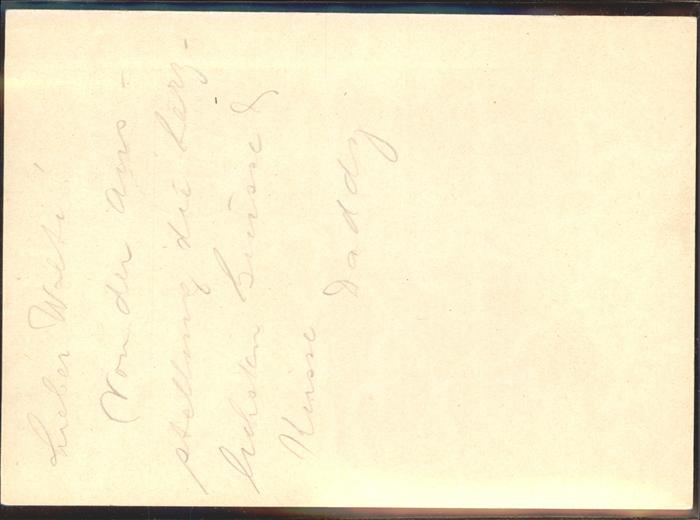 Lieber Walti!
Von der Aus-
stellung die herz-
lichsten Grüsse &
Küsse
Daddy